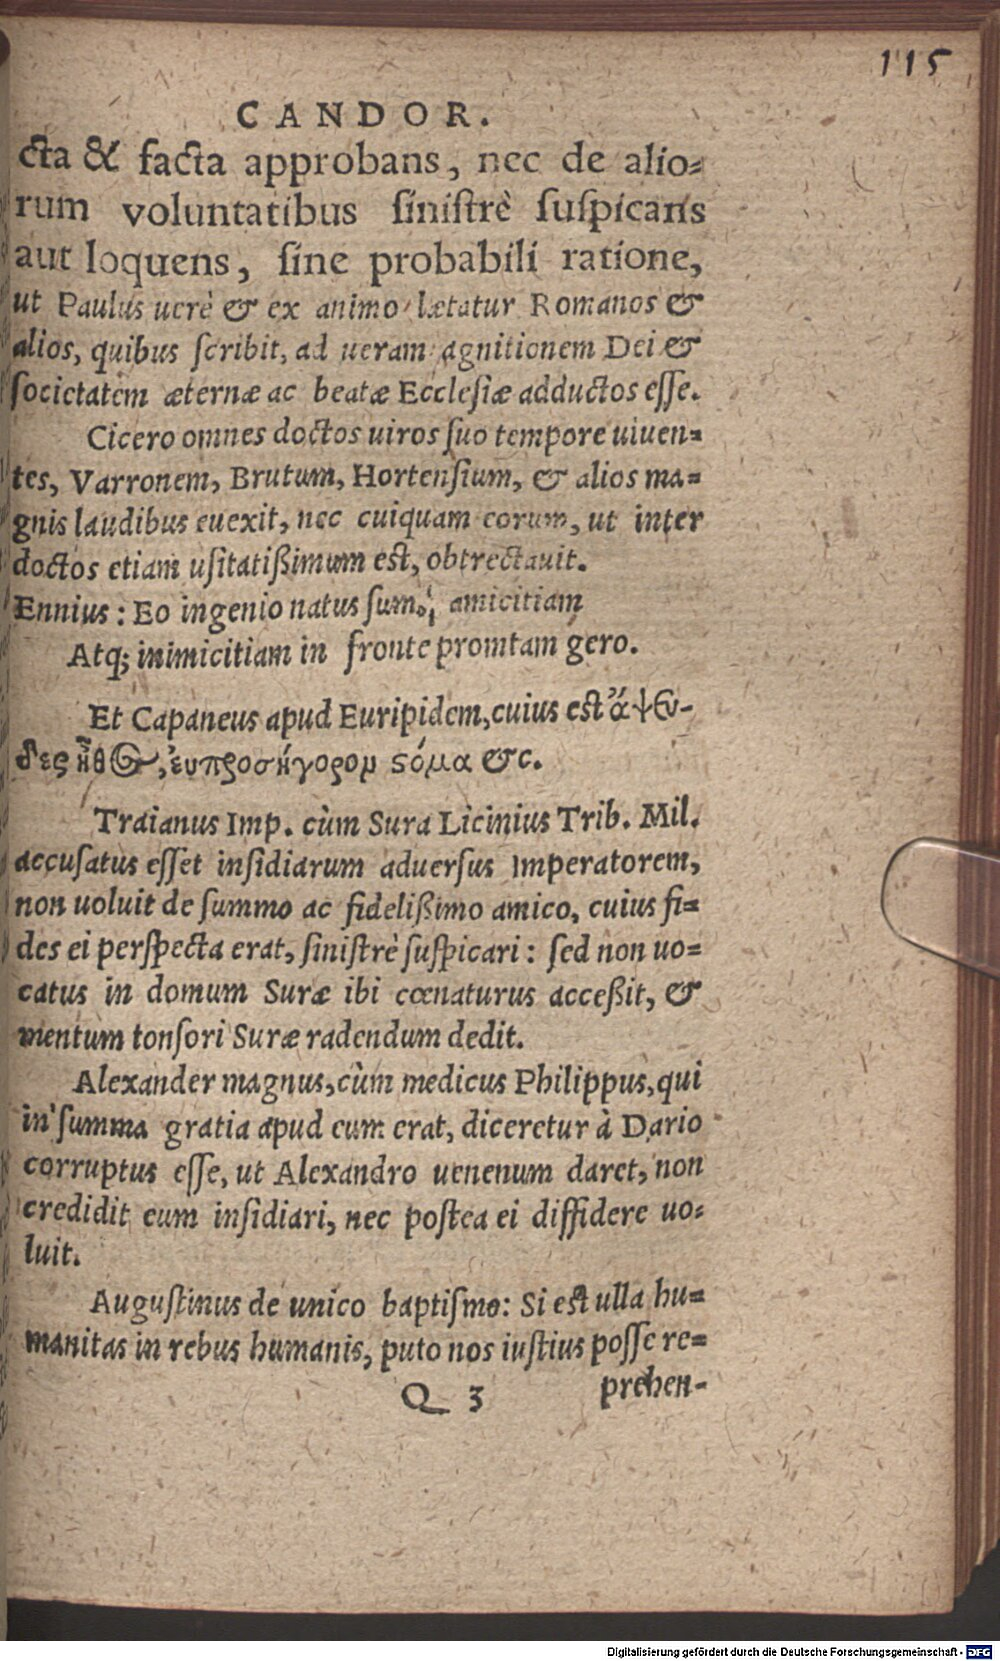 115
CANDOR.
cta & facta approbans, nec de alio⸗
rum voluntatibus sinistrè suspicans
aut loquens, sine probabili ratione,
ut Paulus uerè & ex animo lætatur Romanos &
alios, quibus scribit, ad ueram agnitionem Dei &
societatem æternæ ac beatæ Ecclesiæ adductos esse.
Cicero omnes doctos uiros suo tempore uiuen⸗
tes, Varronem, Brutum, Hortensium, & alios ma⸗
gnis laudibus euexit, nec cuiquam eorum, ut inter
doctos etiam usitatißimum est, obtrectauit.
Ennius: Eo ingenio natus sum, amicitiam
Atq; inimicitiam in fronte promtam gero.
Et Capaneus apud Euripidem, cuius est ἄψευ-
δες ἦθος, ἐυπροσήγορομ ϛόμα &c.
Traianus Imp. cùm Sura Licinius Trib. Mil.
accusatus esset insidiarum aduersus Imperatorem,
non uoluit de summo ac fidelißimo amico, cuius fi⸗
des ei perspecta erat, sinistrè suspicari: sed non uo⸗
catus in domum Suræ ibi cœnaturus acceßit, &
mentum tonsori Suræ radendum dedit.
Alexander magnus, cùm medicus Philippus, qui
in summa gratia apud eum erat, diceretur à Dario
corruptus esse, ut Alexandro uenenum daret, non
credidit eum insidiari, nec postea ei diffidere uo⸗
luit.
Augustinus de unico baptismo: Si est ulla hu⸗
manitas in rebus humanis, puto nos iustius posse re⸗
Q 3 prehen-
Digitalisierung gefördert durch die Deutsche Forschungsgemeinschaft - DFG